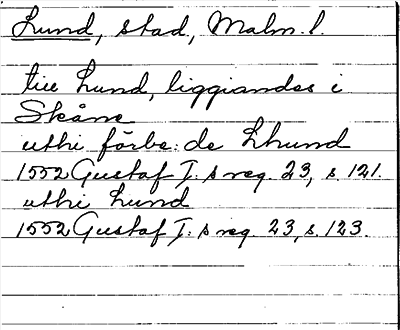 Lund, stad, Malm. l.
till Lund, liggiandes i
Skåne
uthi förbe: de Lhund
1552 Gustaf I: s reg. 23, s. 121.
uthi Lund
1552 Gustaf I: s reg. 23, s. 123.